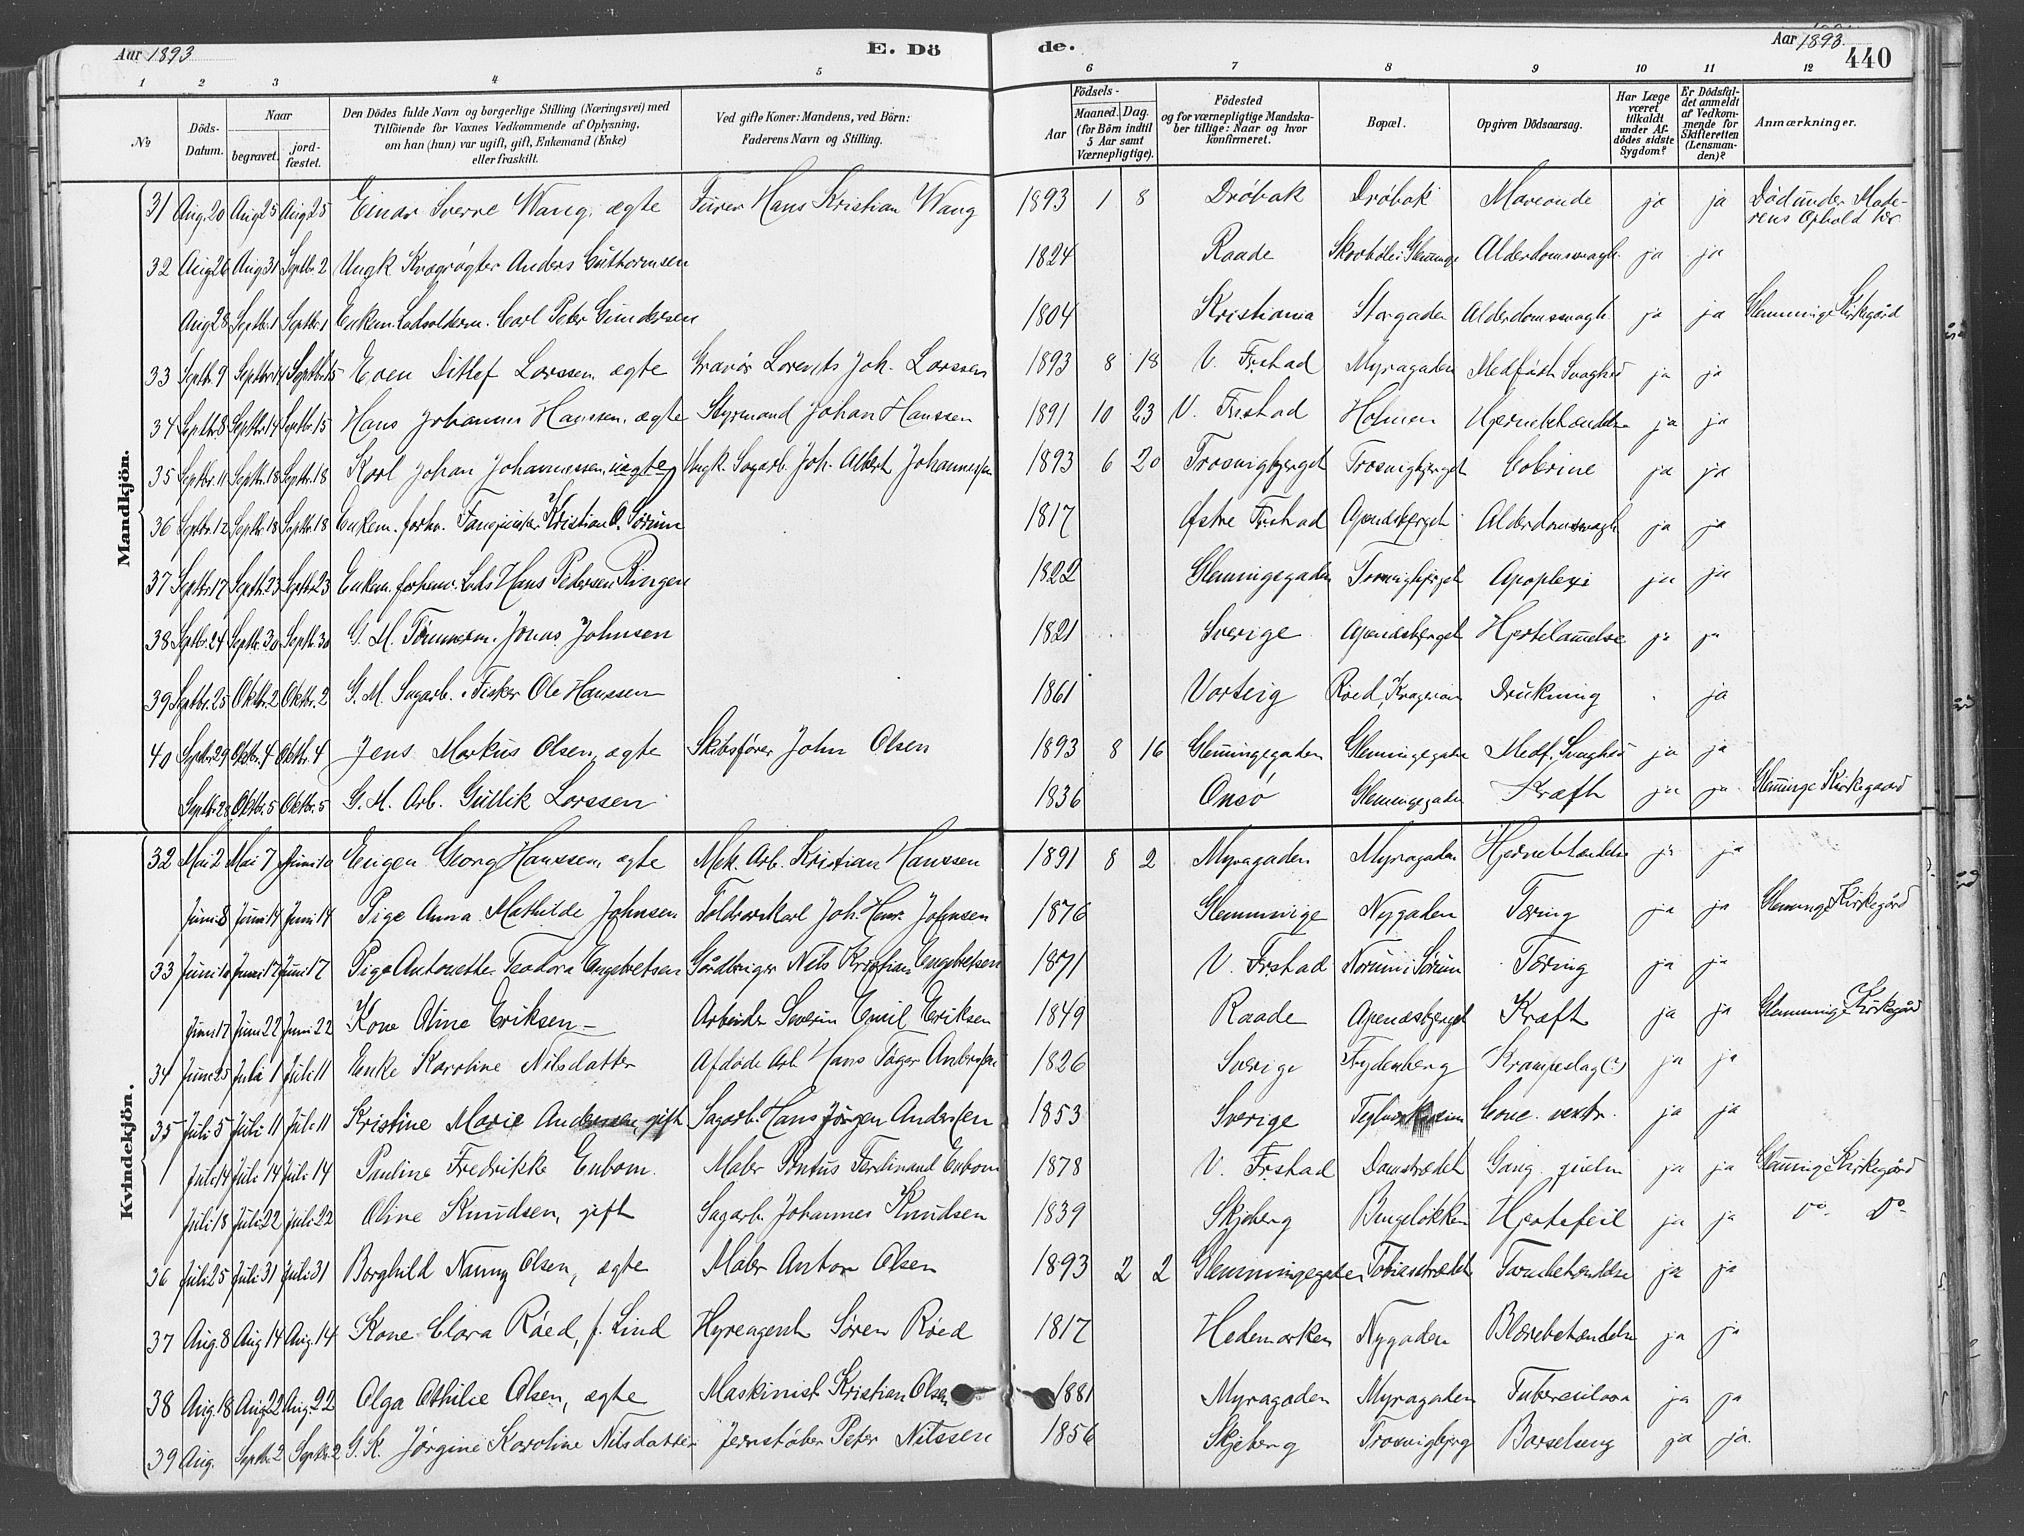 Aar 1893 E. Dö de. Aar 1893. 440
1 2 3 4 5 6 7 8 9 10 11 12
No
Döds-Datum.
Naar
begravet.
jord-fæstet.
Den Dödes fulde Navn og borgerlige Stilling (Næringsvei) med
Tilföiende for Voxnes Vedkommende af Oplysning,
om han (hun) var ugift, gift, Enkemand (Enke)
eller fraskilt.
Ved gifte Koner: Mandens, ved Börn:
Faderens Navn og Stilling.
Födsels-
Aar
Maaned. Dag.
(for Börn indtil
5 Aar samt
Værnepligtige).
Födested
og for værnepligtige Mandska-
ber tillige: Naar og hvor
konfirmeret.
Bopæl.
Opgiven Dödsaarsag.
Har Læge
været
tilkaldt
under Af-
dödes sidste
Sygdom?
Er Dödsfal-
det anmeldt
af Vedkom-
mende for
Skifteretten
(Lensman-
den)?
Anmærkninger.
Mandkjön.
31 Aug. 20 Aug 25 Aug. 25 Einar Sverre Wang, ægte Fürer Hans Kristian Wang 1893 1 8 Dröbak Dröbak ja ja Död under Mode-
rens Ophold her
32 Aug 26 Aug 31 Septbr. 2 Ungk Kvægrögter Anders Guthormsen 1824 Raade Alderdomssvagh. ja ja
Aug 28 Septbr. 1 Septbr. 1 Enkem. Lodsolderm. Carl Peter Gundersen 1804 Kristiania Storgaden Alderdomssvagh ja ja Glemminge Kirkegård
33 Septbr. 9 Septbr 14 Septbr. 15 Even Ditlef Larssen, ægte Gravör Lorents Joh. Larssen 1893 8 18 V. Frstad Myragaden Medfödt Svaghed ja ja
34 Septbr. 8 Septbr. 14 Septbr. 15 Hans Johannes Hanssen, ægte Styrmand Johan Hanssen 1891 10 23 V. Frstad Holmen Hjernebetændelse ja ja
35 Septbr. 11 Septbr. 18 Septbr. 18 Karl Johan Johannessen, uægte Ungk. Sagarb. Joh. Albert Johannessen 1893 6 20 Trosvigbjerget Trosvigbjerget Colerine ja ja
36 Septbr. 12 Septbr. 18 Septbr. 18 Enkem. forhv. Kristian O. Sørum 1817 Østre Frstad Apenæsberget Alderdomssvagh ja ja
37 Septbr. 17 Septbr. 23 Septbr. 23 Enkem. forhenv. Lods Hans Pedersen Ringen 1822 Glemmingegaden Trosvigbjerget Apoplexi ja ja
38 Septbr. 24 Septbr. 30 Septbr. 30 G. M. Tömmerm. Jonas Johnsen 1821 Sverige Apenæsberget Hjertelammelse ja ja
39 Septbr. 25 Oktbr. 2 Oktbr. 2 G. M. Sagarb. Fisker Ole Hanssen 1861 Varteig Röed, Drukning ja
40 Septbr. 29 Oktbr. 4 Oktbr. 4 Jens Markus Olsen, ægte Skibsförer John Olsen 1893 8 16 Glemmingegaden Glemmingegaden Medf. Svaghed ja ja
Septbr. 28 Oktbr. 5 Oktbr. 5 G. M. Arb. Gullik Larssen 1836 Onsö Glemmingegaden Kræft ja ja Glemminge Kirkegaard
Kvindekjön.
32 Mai 2 Mai 7 Juni 10 Eugen Georg Hanssen, ægte Mek. Arb. Kristian Hanssen 1891 8 2 Myragaden Myragaden Hjernebetændelse ja ja
Juni 8 Juni 14 Juni 14 Pige Anna Mathilde Johnsen Toldrorskarl Joh. Henr. Johnsen 1876 Glemminge Nygaden Tæring ja ja Glemminge Kirkegård
33 Juni 10 Juni 17 Juni 17 Pige Antonette Teodora Engebretsen Gårdbruger Nils Kristian Engebretsen 1871 V. Frstad Norum i Sörum Tæring ja ja
Juni 17 Juni 22 Juni 22 Kone Oline Eriksen Arbeider Severin Emil Eriksen 1849 Raade Apenæsberget Kræft ja ja Glemminge Kirkegård
34 Juni 25 Juli 1 Juli 11 Enke Karoline Nilsdatter Afdöde Arb. Hans Andersen 1826 Sverige Frydenberg Krampeslag (?) ja ja
35 Juli 5 Juli 11 Juli 11 Kristine Marie Andersen, gift Sagarb. Hans Jörgen Andersen 1853 Sverige ja ja
1 Juli 14 Juli 14 Juli 14 Pauline Fredrikke Enbom. Maler Pontus Ferdinand Enbom 1878 V. Frstad Damstrædet ja ja Glemminge Kirkegård
Juli 18 Juli 22 Juli 22 Oline Knudsen, gift Sagarb. Johannes Knudsen 1839 Skjeberg Bingelökken Hjertefeil ja ja Do. Do.
36 Juli 25 Juli 31 Juli 31 Borghild Nanny Olsen, ægte Maler Anton Olsen 1893 2 2 Glemmingegaden Tobiasstrædet Tarmbetændelse ja ja
37 Aug. 8 Aug 14 Aug. 14 Kone Clara Röed, f. Lind Hyreagent Sören Röed 1817 Hedemarken Nygaden Blærebetændelse ja ja
38 Aug. 18 Aug. 22 Aug. 22 Olga Othilie Olsen, ægte Maskinist Kristian Olsen 1881 Myragaden Myragaden Tuberculose ja ja
39 Aug. Septbr. 2 Septbr. 2 G. K. Jörgine Karoline Nilsdatter Jernstöber Peter Nilssen 1856 Skjeberg Trosvigbjerg Barselseng ja ja.